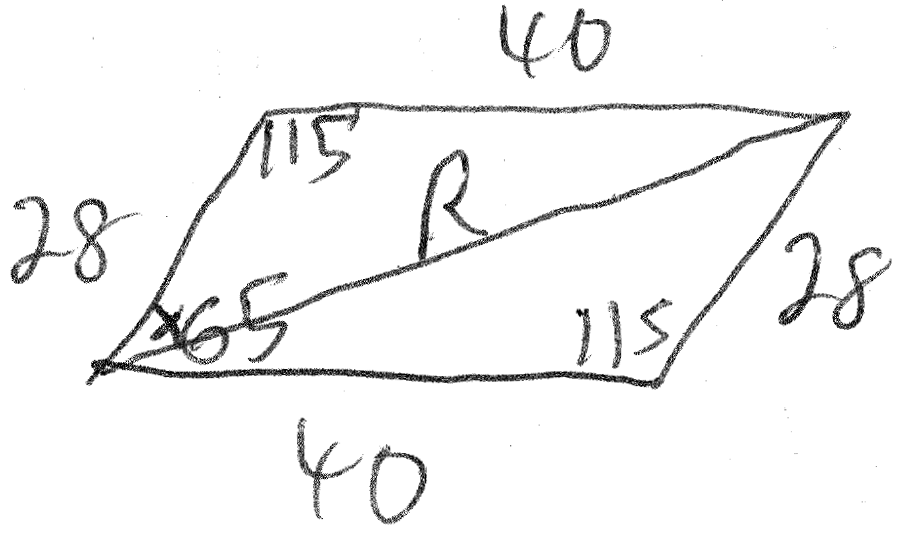 40
115
R
28
28
x 65
115
40